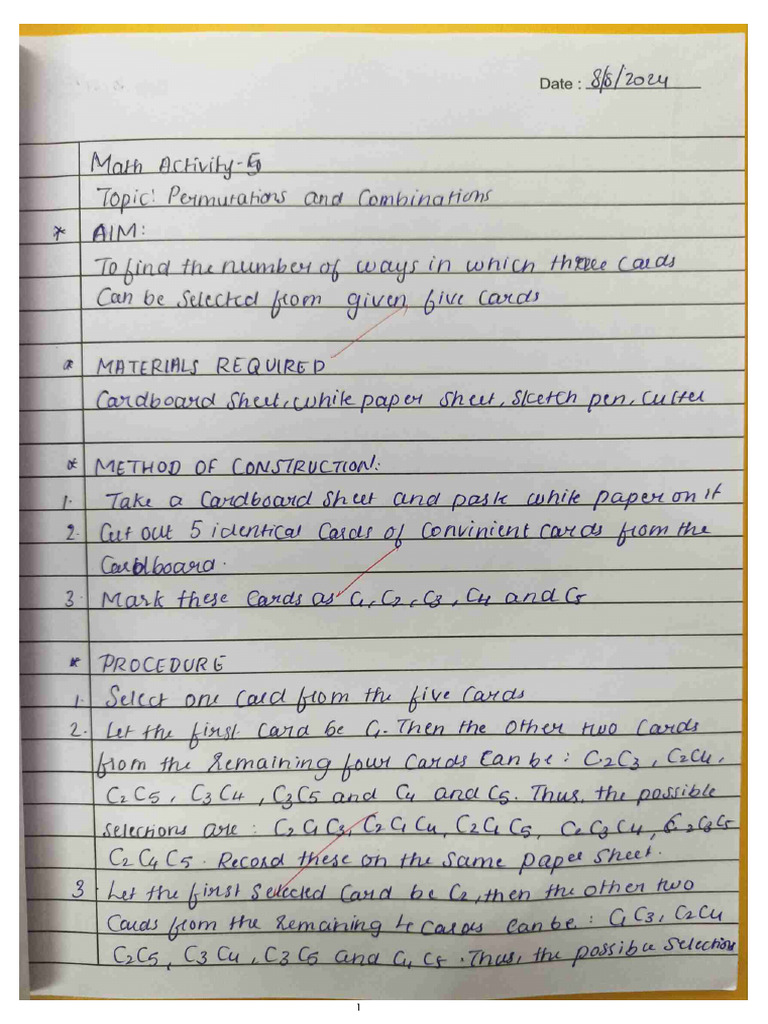 Date : 8/8/2024
Math Activity-5
Topic: Permutations and Combinations
* AIM:
To find the number of ways in which three cards
Can be selected from given five cards
* MATERIALS REQUIRED
Cardboard sheet, white paper sheet, sketch pen, cutter
* METHOD OF CONSTRUCTION:
1. Take a cardboard sheet and paste white paper on it
2. Cut out 5 identical cards of convinient cards from the
Cardboard.
3. Mark these cards as C1, C2, C3, C4 and C5
* PROCEDURE
1. Select one card from the five cards
2. Let the first card be C1. Then the other two cards
from the remaining four cards can be : C2C3, C2C4,
C2C5, C3C4, C3C5 and C4 and C5. Thus, the possible
selections are : C2C1C3, C2C1C4, C2C1C5, C2C3C4, C2C3C5
C2C4C5. Record these on the same paper sheet.
3. Let the first selected card be C2, then the other two
cards from the remaining 4 cards can be : C1C3, C2C4
C2C5, C3C4, C3C5 and C1, C5. Thus, the possible selections
1